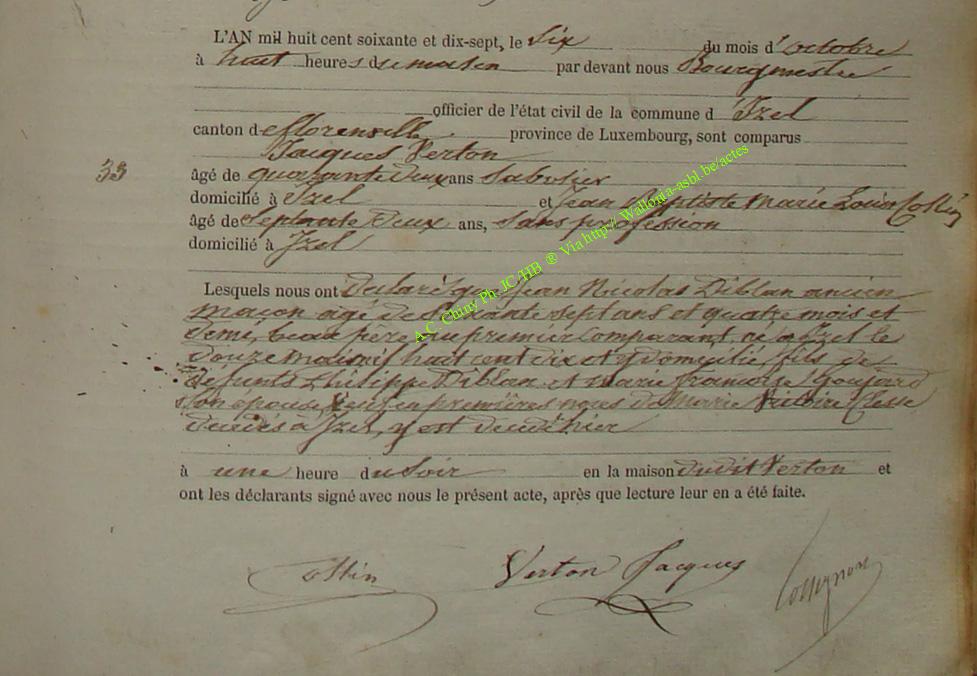 L'AN mil huit cent soixante et dix-sept, le Six du mois d'octobre
à huit heures du matin par devant nous Bourgmestre
officier de l'état civil de la commune d'Izel
canton de florenville province de Luxembourg, sont comparus
Jacques Verton
33
âgé de quarante deux ans Sabotier
domicilié à Izel et Jean Baptiste Marie Louis Collin
âgé de Septante deux ans, Sans profession
domicilié à Izel
Lesquels nous ont déclaré que Jean Nicolas Diblan ancien
maçon âgé de Soixante sept ans et quatre mois et
demi, beau père du premier comparant, né à Izel le
douze mai mil huit cent dix et y domicilié, fils de
défunts Philippe Diblan et marie françoise
Son épouse, veuf en premières noces de Marie Victoire Classe
décédée à Izel, y est décédé hier
à une heure du Soir en la maison dudit Verton et
ont les déclarants signé avec nous le présent acte, après que lecture leur en a été faite.
Collin Verton Jacques
A.C. Chiny Ph JC/HB ® Via http://Wallonia-asbl.be/actes